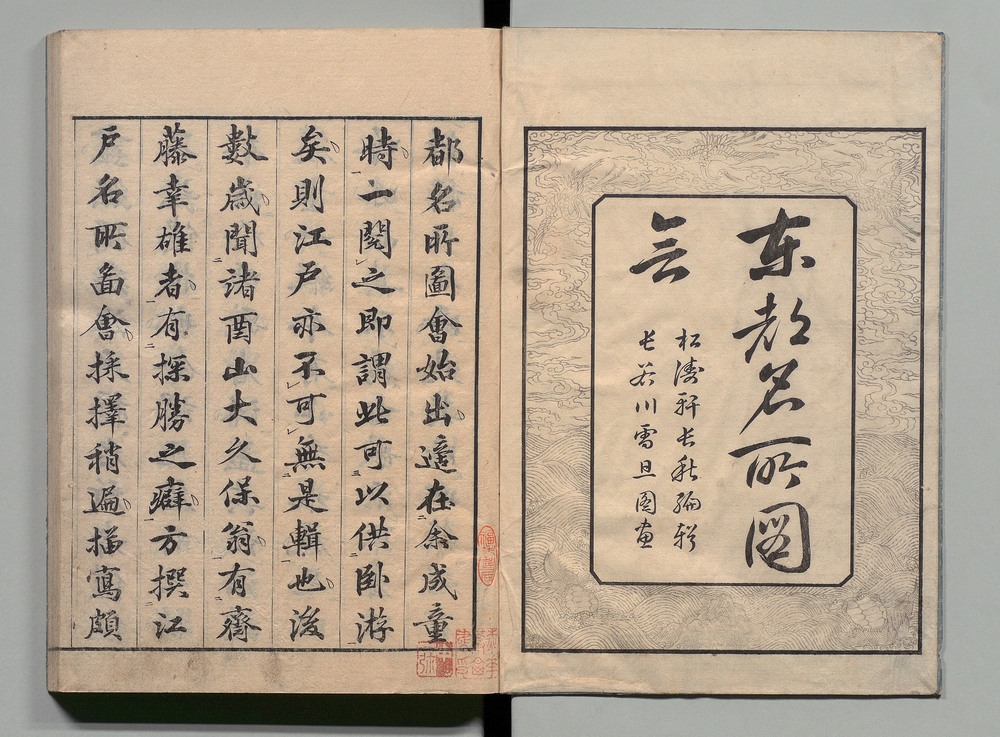 东都名所図
会
松濤軒長秋編輯
長谷川雪旦図画
都名所圖會始出適在余成童
時一閲之即謂此可以供卧游
矣則江戸亦不可無是輯也後
數歳聞諸酉山大久保翁有齋
藤幸雄者有探勝之癖方撰江
戸名所畐會採擇稍遍描寫頗